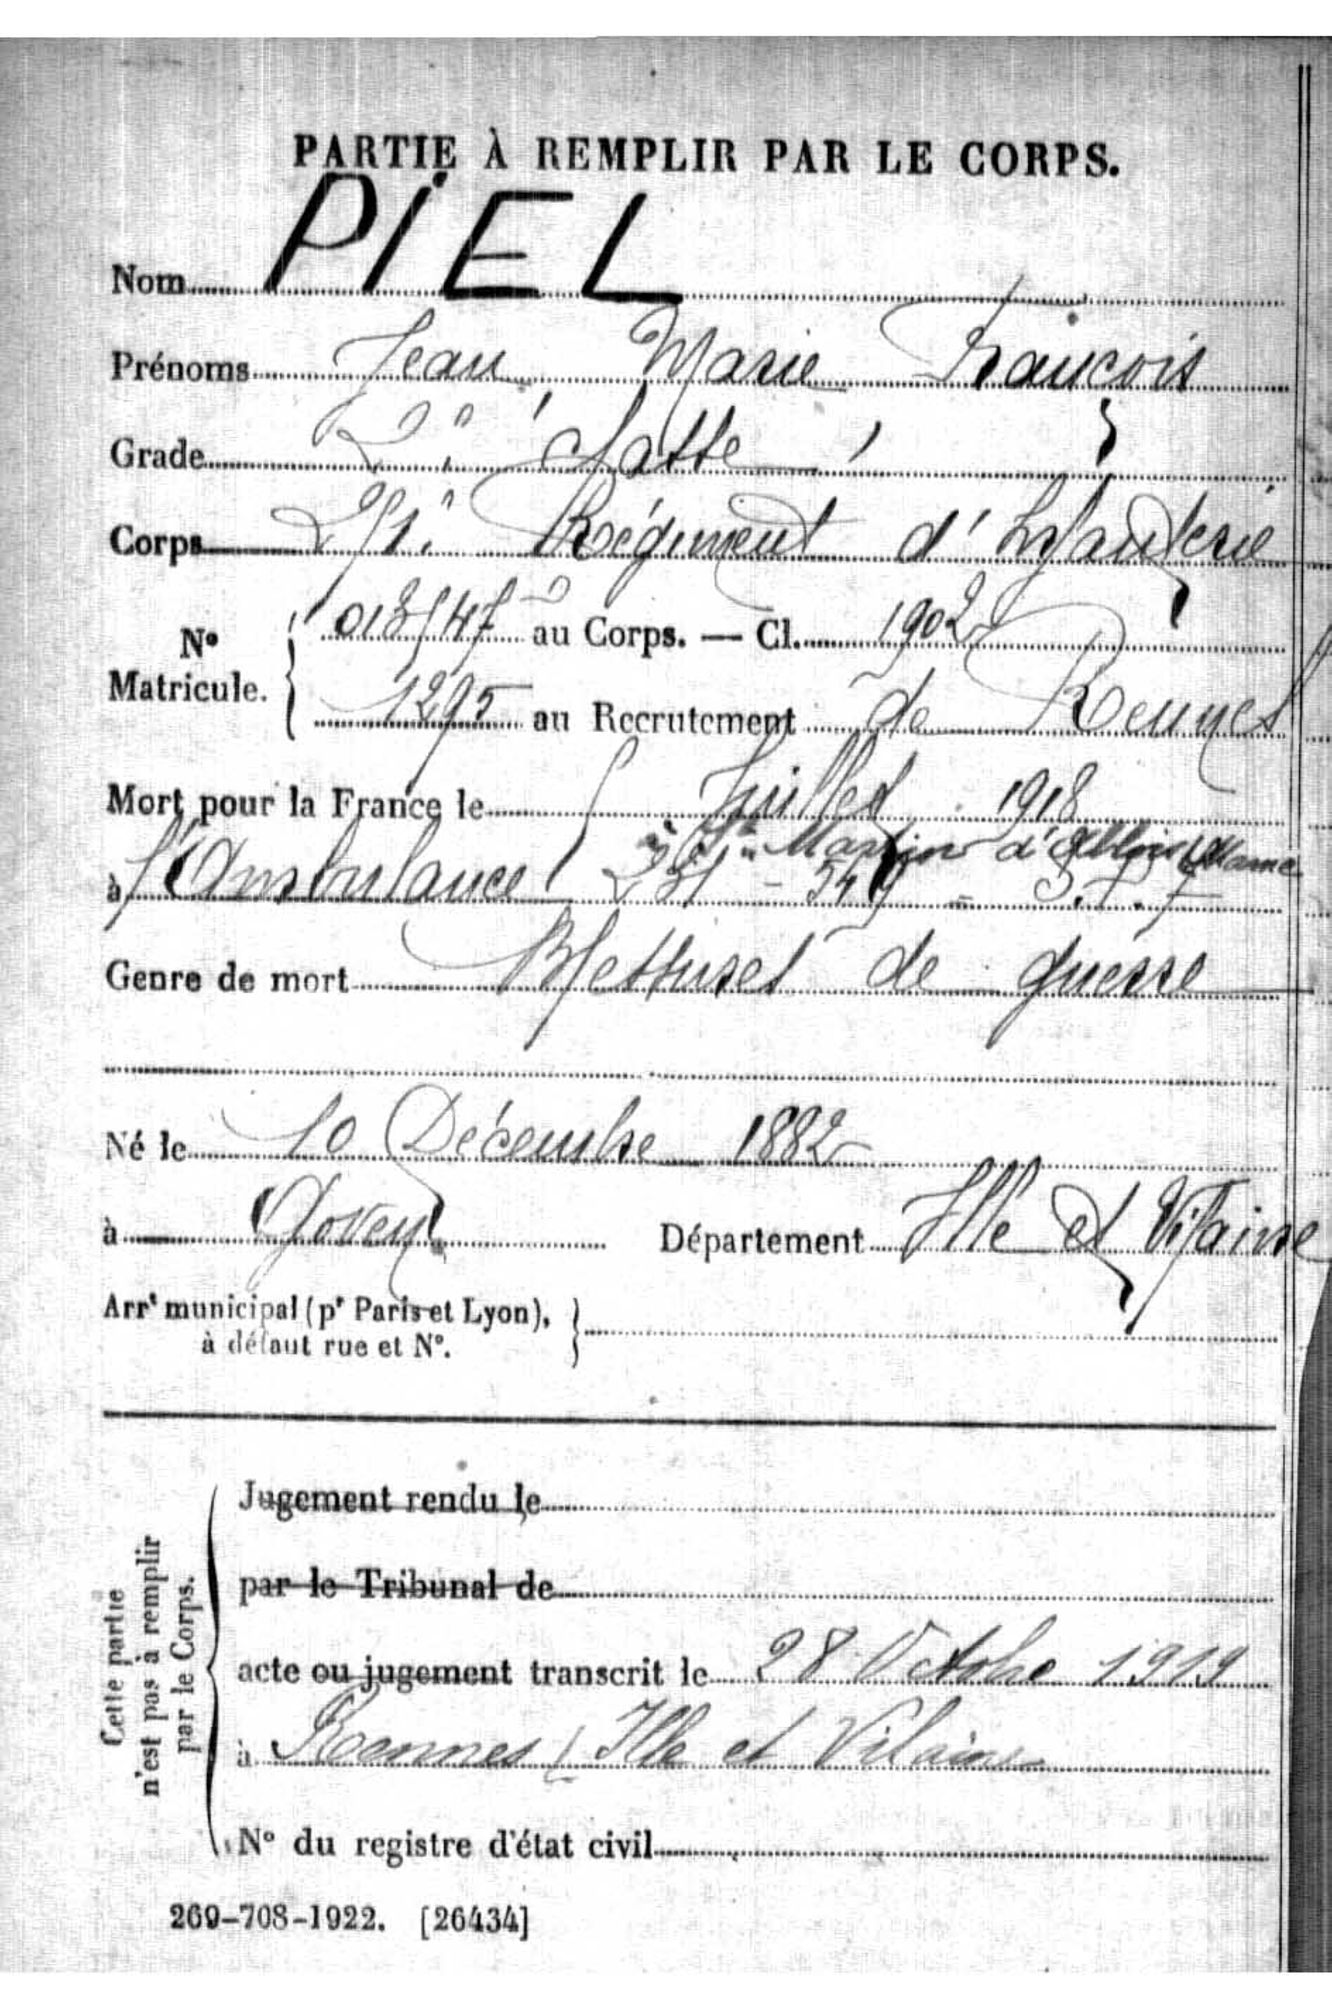 PARTIE À REMPLIR PAR LE CORPS.
Nom PIEL
Prénoms Jean, Marie François
Grade 2è classe
Corps 251è Régiment d'Infanterie
N° Matricule. 013547 au Corps. — Cl. 1902
1295 au Recrutement de Rennes
Mort pour la France le Juillet 1918
à St Martin d' Marne
à l'Ambulance 231 - S.P. 7
Genre de mort Blessures de guerre
Né le 10 Décembre 1882
à Goven Département Ille et Vilaine
Arrt municipal (pr Paris et Lyon),
à défaut rue et N°.
Cette partie
n'est pas à remplir
par le Corps.
Jugement rendu le
par le Tribunal de
acte ou jugement transcrit le 28 Octobre 1919
à Rennes (Ille et Vilaine
N° du registre d'état civil
269-708-1922. [26434]